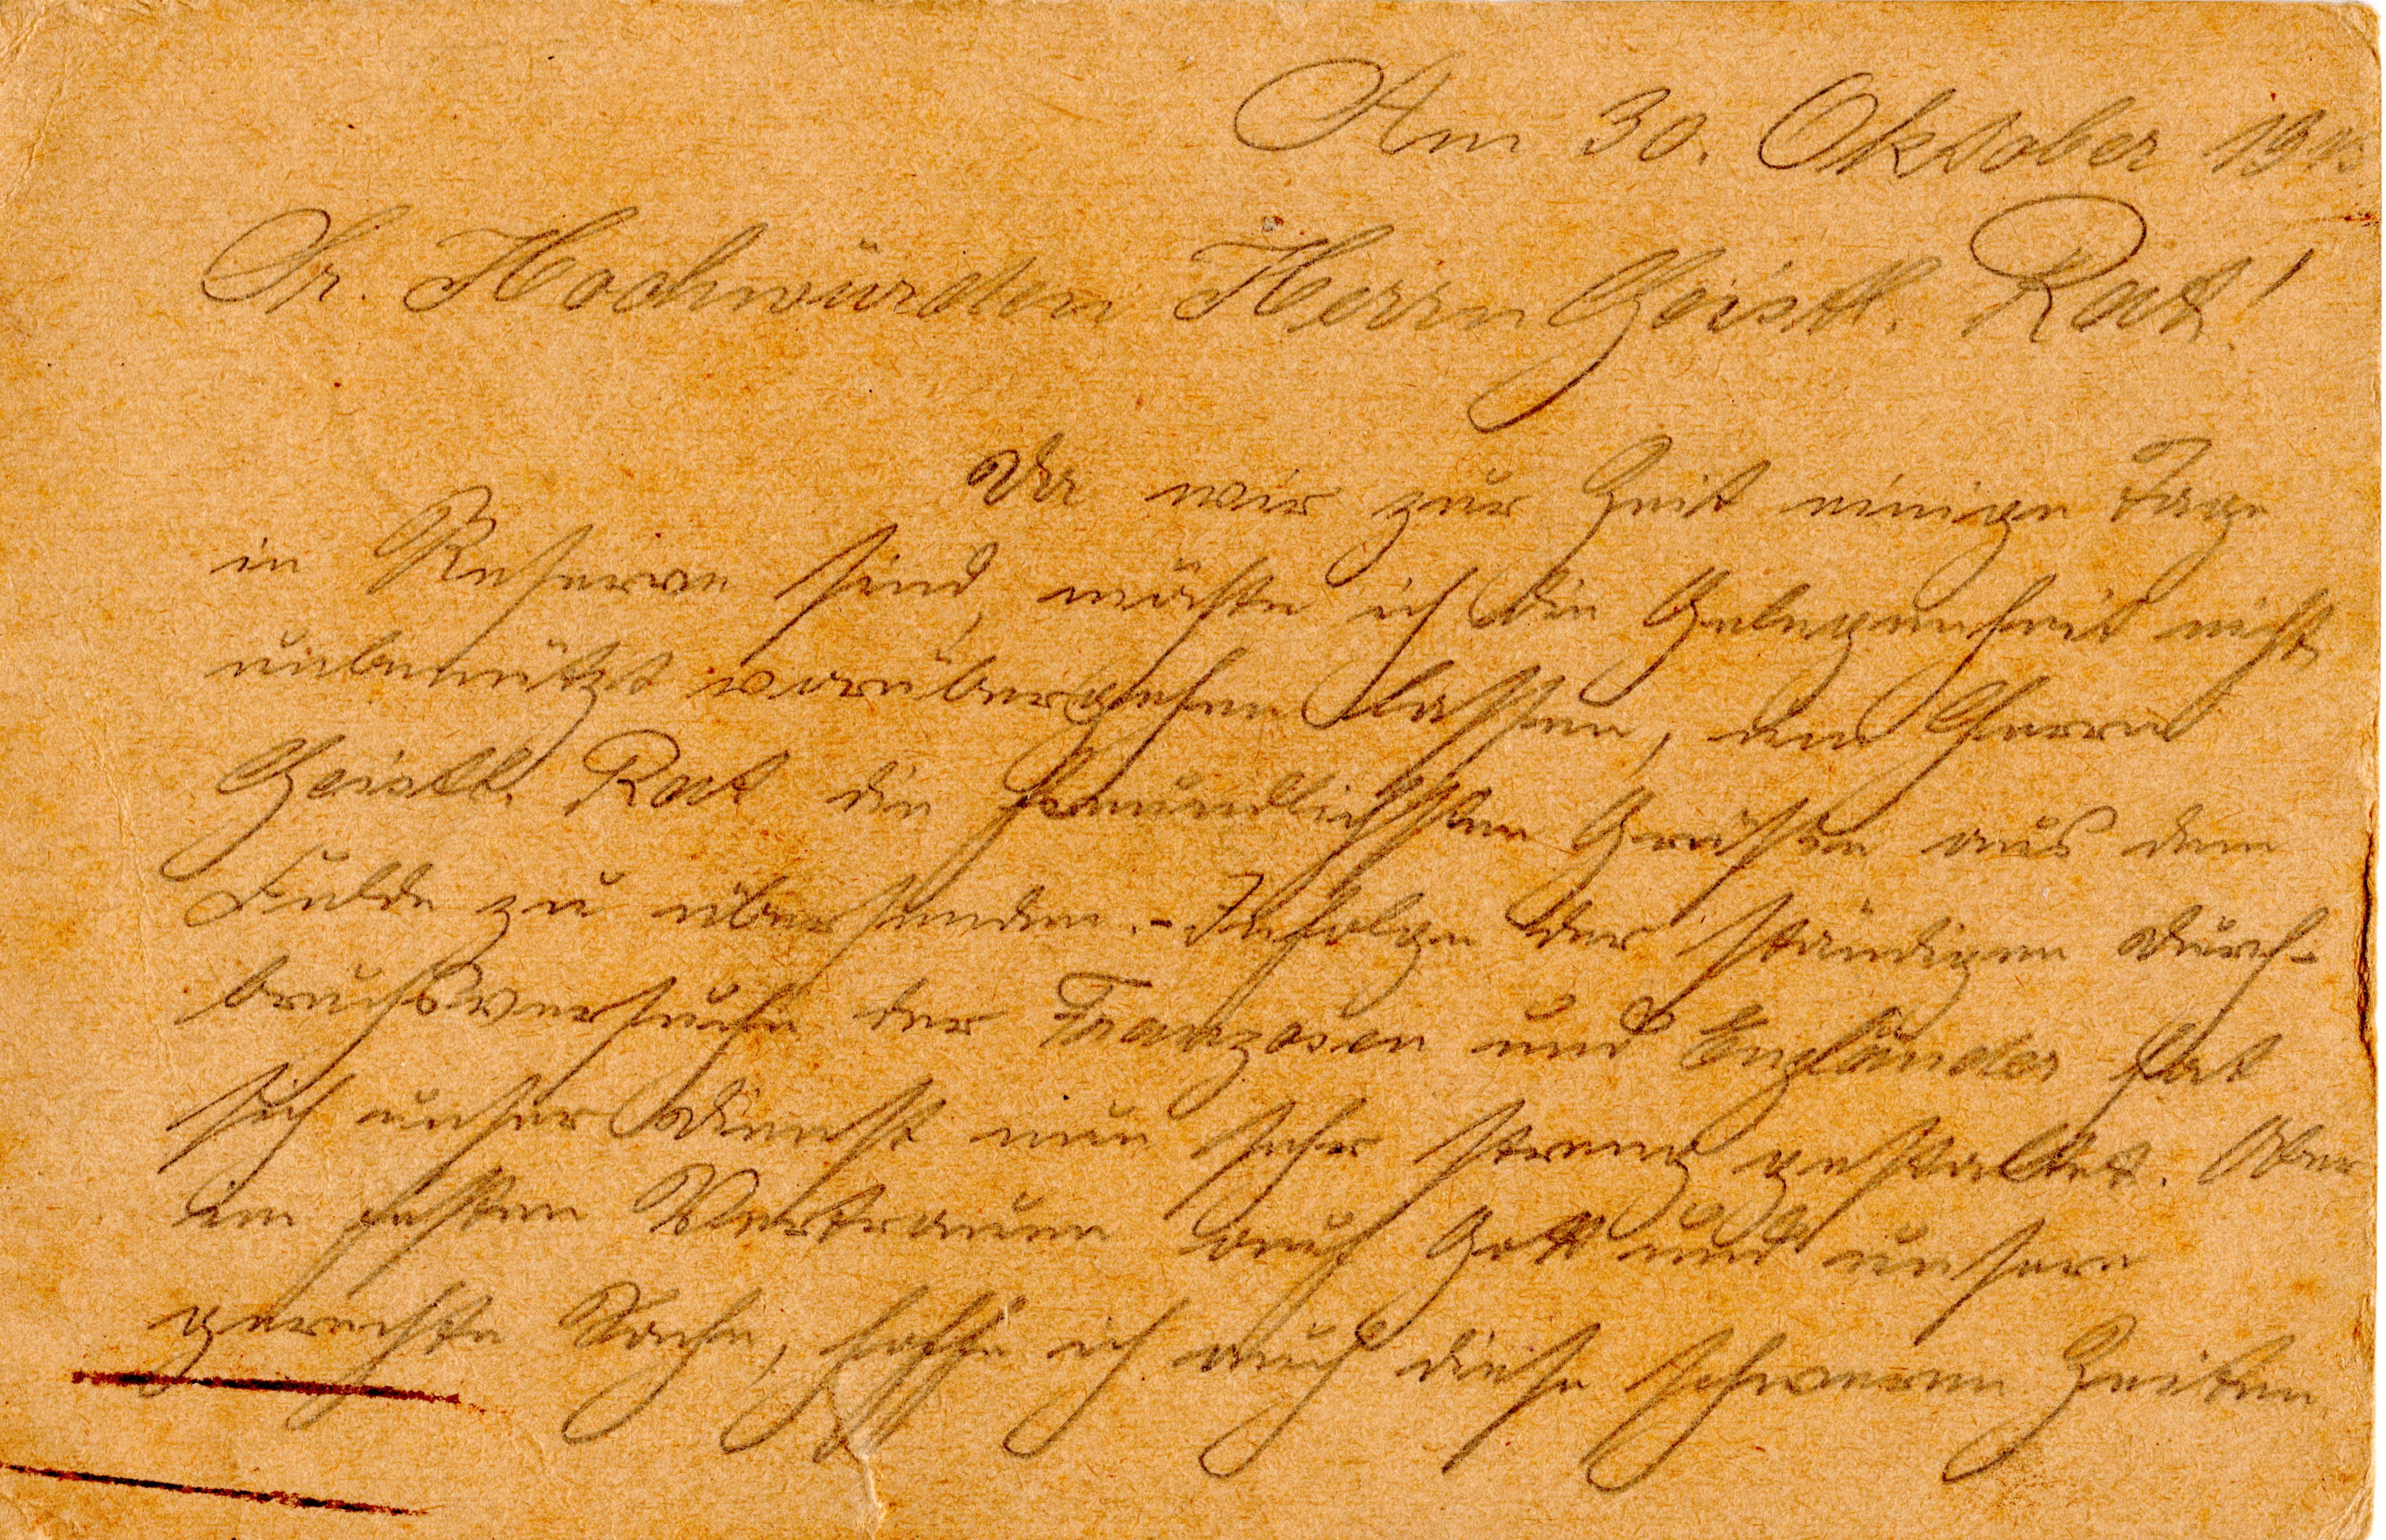 Am 30. Oktober 1915
Sr. Hochwürden Herrn Geistl. Rat!
Da wir zur Zeit einige Tage
in Reserve sind, möchte ich die Gelegenheit nicht
unbenützt vorübergehen lassen, um Herrn
Geistl. Rat die freundlichsten Grüsse aus dem
Felde zu übersenden. - Infolge der ständigen Durch-
bruchsversuche der Franzosen und Engländer hat
sich unser Dienst nun sehr streng gestaltet. Aber
im festen Vertrauen auf Gott und unsere
gerechte Sache, hoffe ich auch diese schweren Zeiten